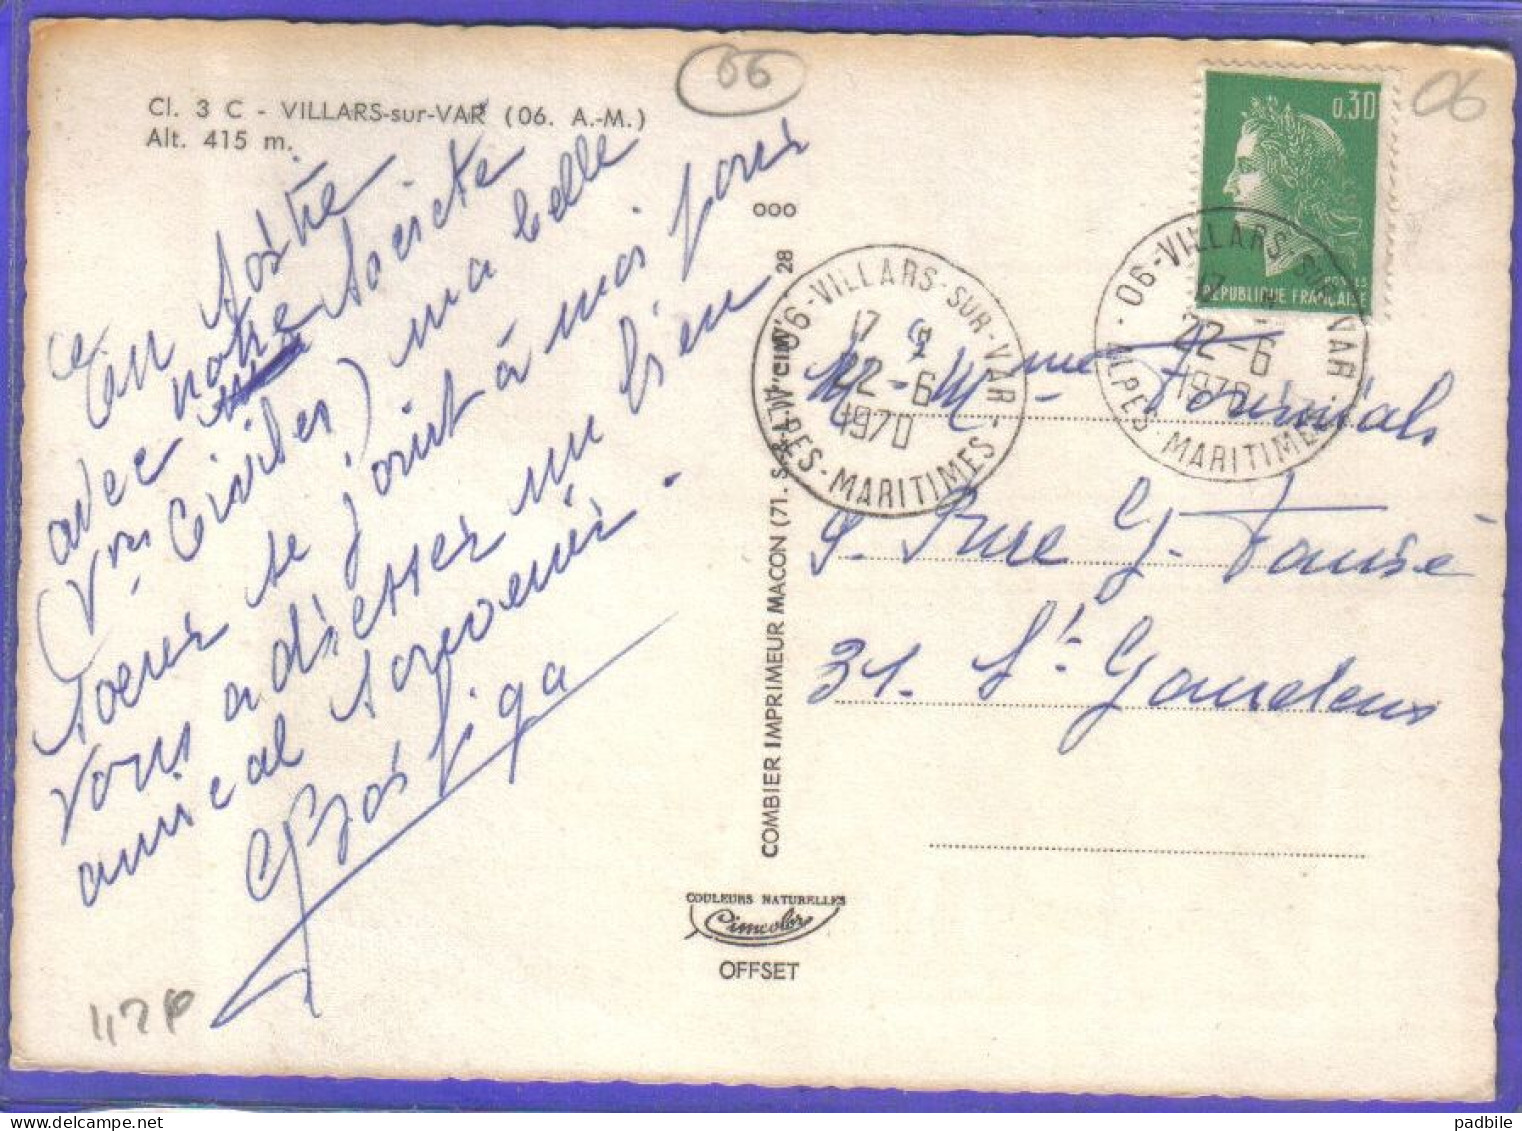 06
06
Cl. 3 C - VILLARS-sur-VAR (06. A.-M.)
Alt. 415 m.
0,30
POSTES
REPUBLIQUE FRANÇAISE
06-VILLARS-SUR-VAR
17 H
22-6
1970
ALPES-MARITIMES
06-VILLARS-SUR-VAR-
17
22-6
1970
ALPES-MARITIMES
En
avec notre Société
(Vins Civiles) ma belle
soeur se joint à moi pour
vous adresser un bien
amical souvenir.
M-Mme
9. Rue
31. St Gaudens
28 000
COMBIER IMPRIMEUR MACON (71. S.-&-L.) "CIM"
COULEURS NATURELLES
Cimcolor
OFFSET